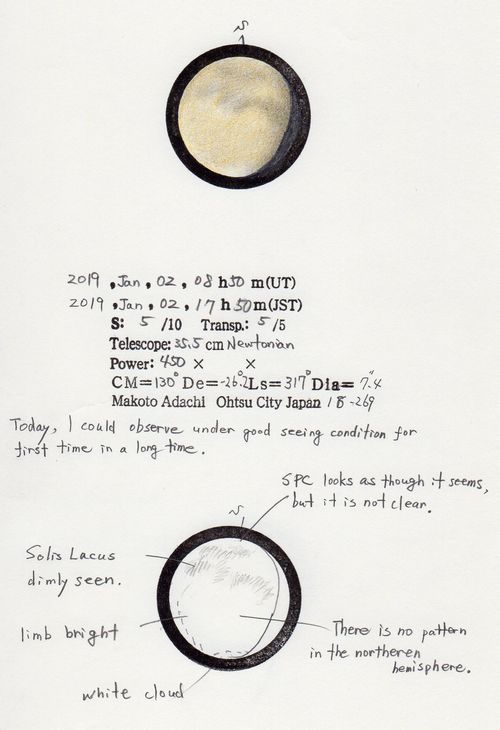 S
2019 , Jan , 02 , 08 h 50 m (UT)
2019 , Jan , 02 , 17 h 50 m (JST)
S: 5 /10 Transp.: 5 /5
Telescope: 35.5 cm Newtonian
Power: 450 × ×
CM=130° De=-26.2° Ls=317° Dia= 7."4
Makoto Adachi Ohtsu City Japan 18-269
Today, I could observe under good seeing condition for
first time in a long time.
SPC looks as though it seems,
but it is not clear.
S
Solis Lacus
dimly seen.
limb bright
There is no pattern
in the northeren
hemisphere.
white cloud